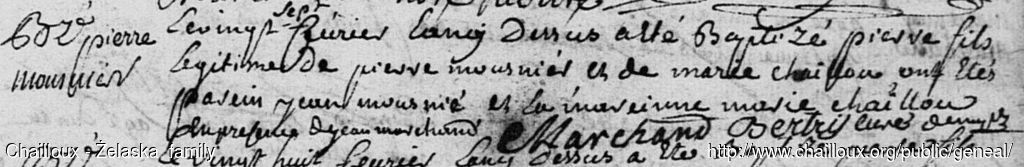 Bpz pierre mousnier
Le vingt sept feurier Lanq Dessus a Eté Baptizé pierre fils
Legitime De pierre mousnier et de marie chaillou ont Etés
parein jean mousnié et la mareinne marie chaillou
En presence De jean marchand Marchand Bertry curé
Le vingt huit feurier Lanq Dessus a Ete
Chailloux - Żelaska family
http://www.chailloux.org/public/geneal/